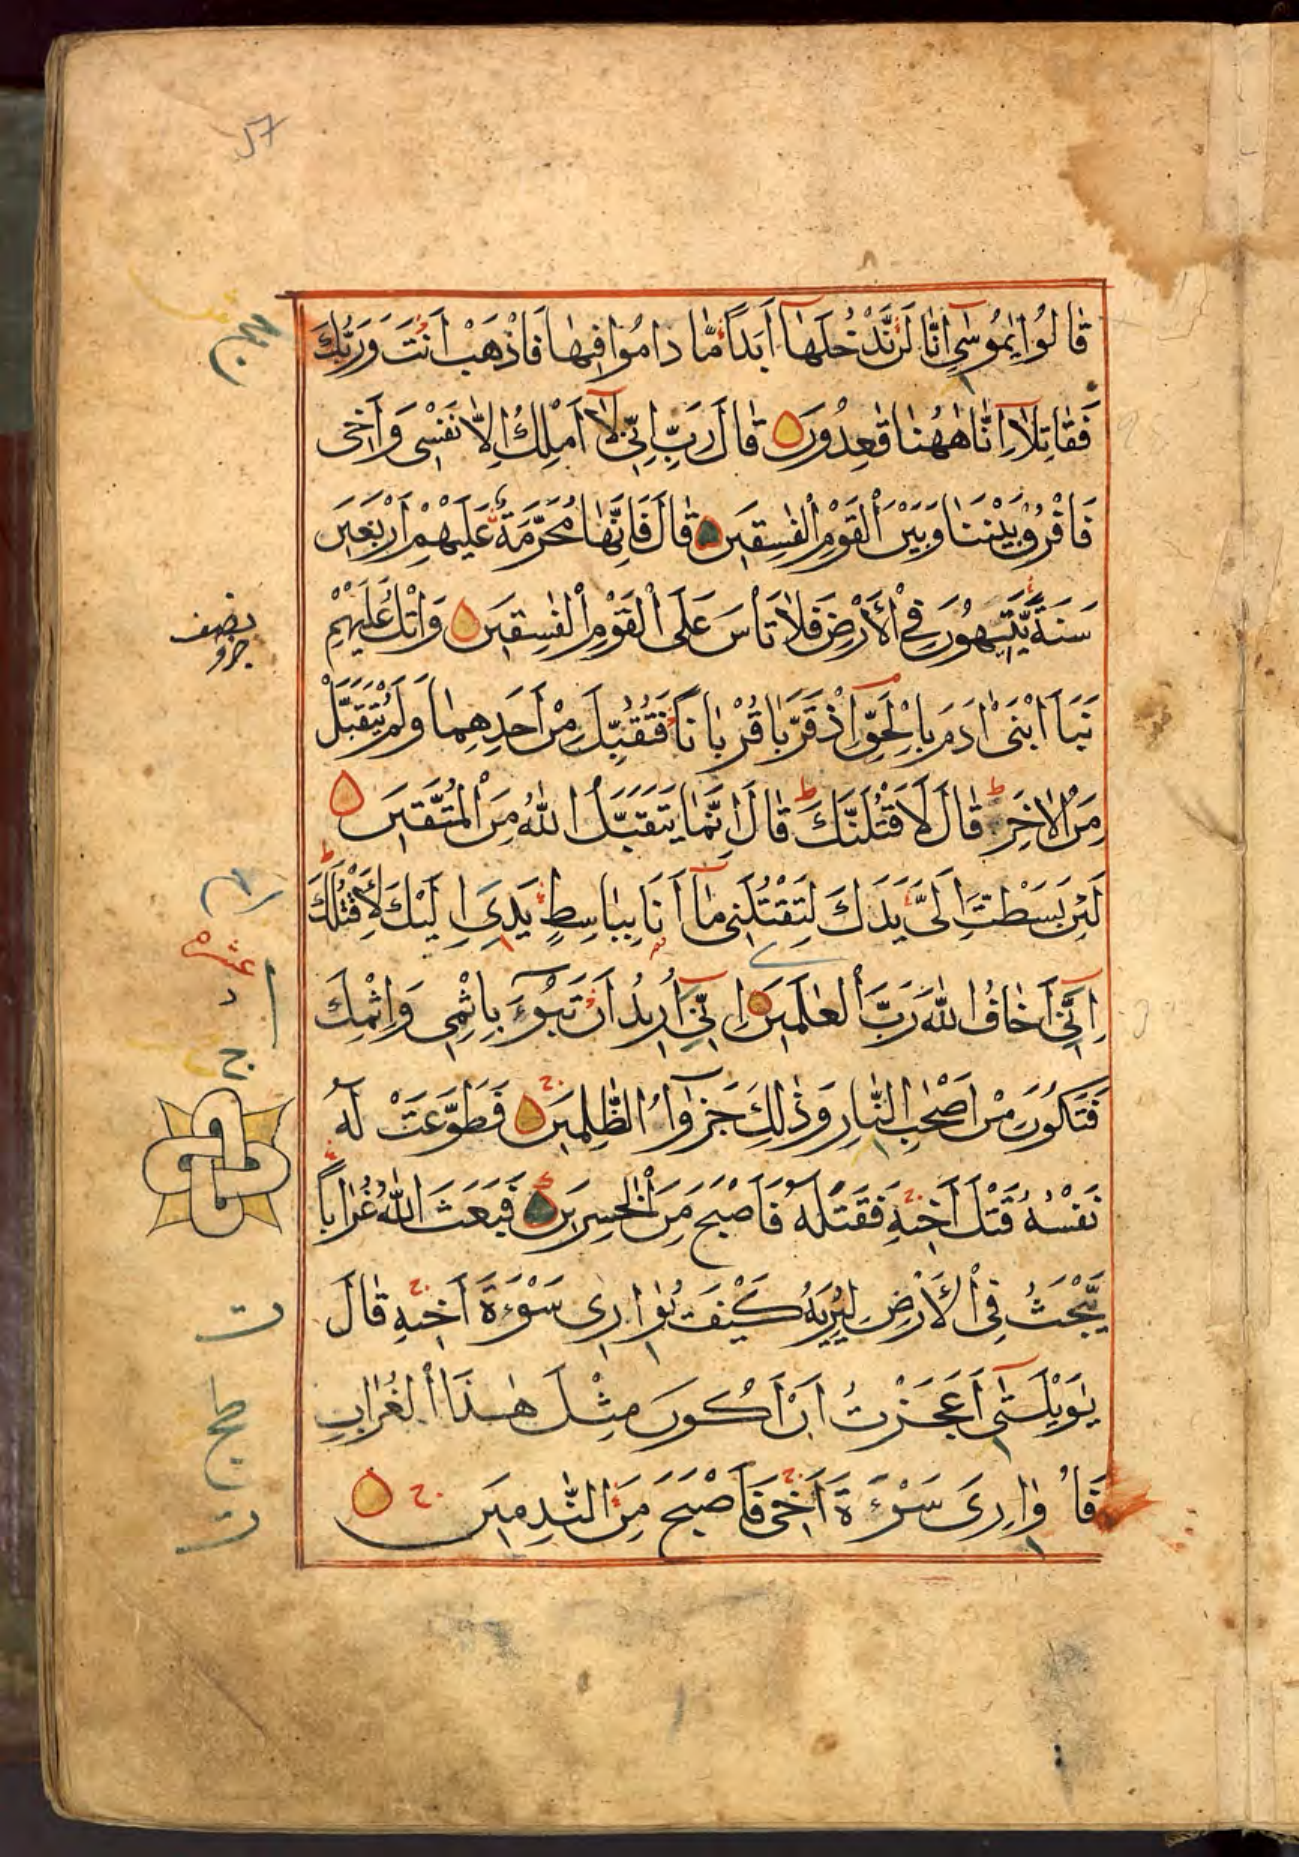 قَالُوا يٰمُوسٰٓى اِنَّا لَنْ نَّدْخُلَهَآ اَبَدًا مَّا دَامُوا فِيهَا فَاذْهَبْ اَنْتَ وَرَبُّكَ
فَقَاتِلَآ اِنَّا هٰهُنَا قٰعِدُونَ قَالَ رَبِّ اِنِّى لَآ اَمْلِكُ اِلَّا نَفْسِى وَاَخِى
فَافْرُقْ بَيْنَنَا وَبَيْنَ الْقَوْمِ الْفٰسِقِينَ قَالَ فَاِنَّهَا مُحَرَّمَةٌ عَلَيْهِمْ اَرْبَعِينَ
سَنَةً يَّتِيهُونَ فِى الْأَرْضِ فَلَا تَأْسَ عَلَى الْقَوْمِ الْفٰسِقِينَ وَاتْلُ عَلَيْهِمْ
نَبَاَ ابْنَىْ اٰدَمَ بِالْحَقِّ اِذْ قَرَّبَا قُرْبَانًا فَتُقُبِّلَ مِنْ اَحَدِهِمَا وَلَمْ يُتَقَبَّلْ
مِنَ الْاٰخَرِ قَالَ لَاَقْتُلَنَّكَ قَالَ اِنَّمَا يَتَقَبَّلُ اللّٰهُ مِنَ الْمُتَّقِينَ
لَئِنْ بَسَطْتَ اِلَىَّ يَدَكَ لِتَقْتُلَنِى مَآ اَنَا بِبَاسِطٍ يَدِىَ اِلَيْكَ لِأَقْتُلَكَ
اِنِّىٓ اَخَافُ اللّٰهَ رَبَّ الْعٰلَمِينَ اِنِّىٓ اُرِيدُ اَنْ تَبُوْٓءَ بِاِثْمِى وَاِثْمِكَ
فَتَكُونَ مِنْ اَصْحٰبِ النَّارِ وَذٰلِكَ جَزٰٓؤُا الظّٰلِمِينَ فَطَوَّعَتْ لَهُ
نَفْسُهُ قَتْلَ اَخِيهِ فَقَتَلَهُ فَاَصْبَحَ مِنَ الْخٰسِرِينَ فَبَعَثَ اللّٰهُ غُرَابًا
يَّبْحَثُ فِى الْأَرْضِ لِيُرِيَهُ كَيْفَ يُوَارِى سَوْءَةَ اَخِيهِ قَالَ
يٰوَيْلَتٰٓى اَعَجَزْتُ اَنْ اَكُونَ مِثْلَ هٰذَا الْغُرَابِ
فَاُوَارِىَ سَوْءَةَ اَخِى فَاَصْبَحَ مِنَ النّٰدِمِينَ
نصف
جزو
عشره